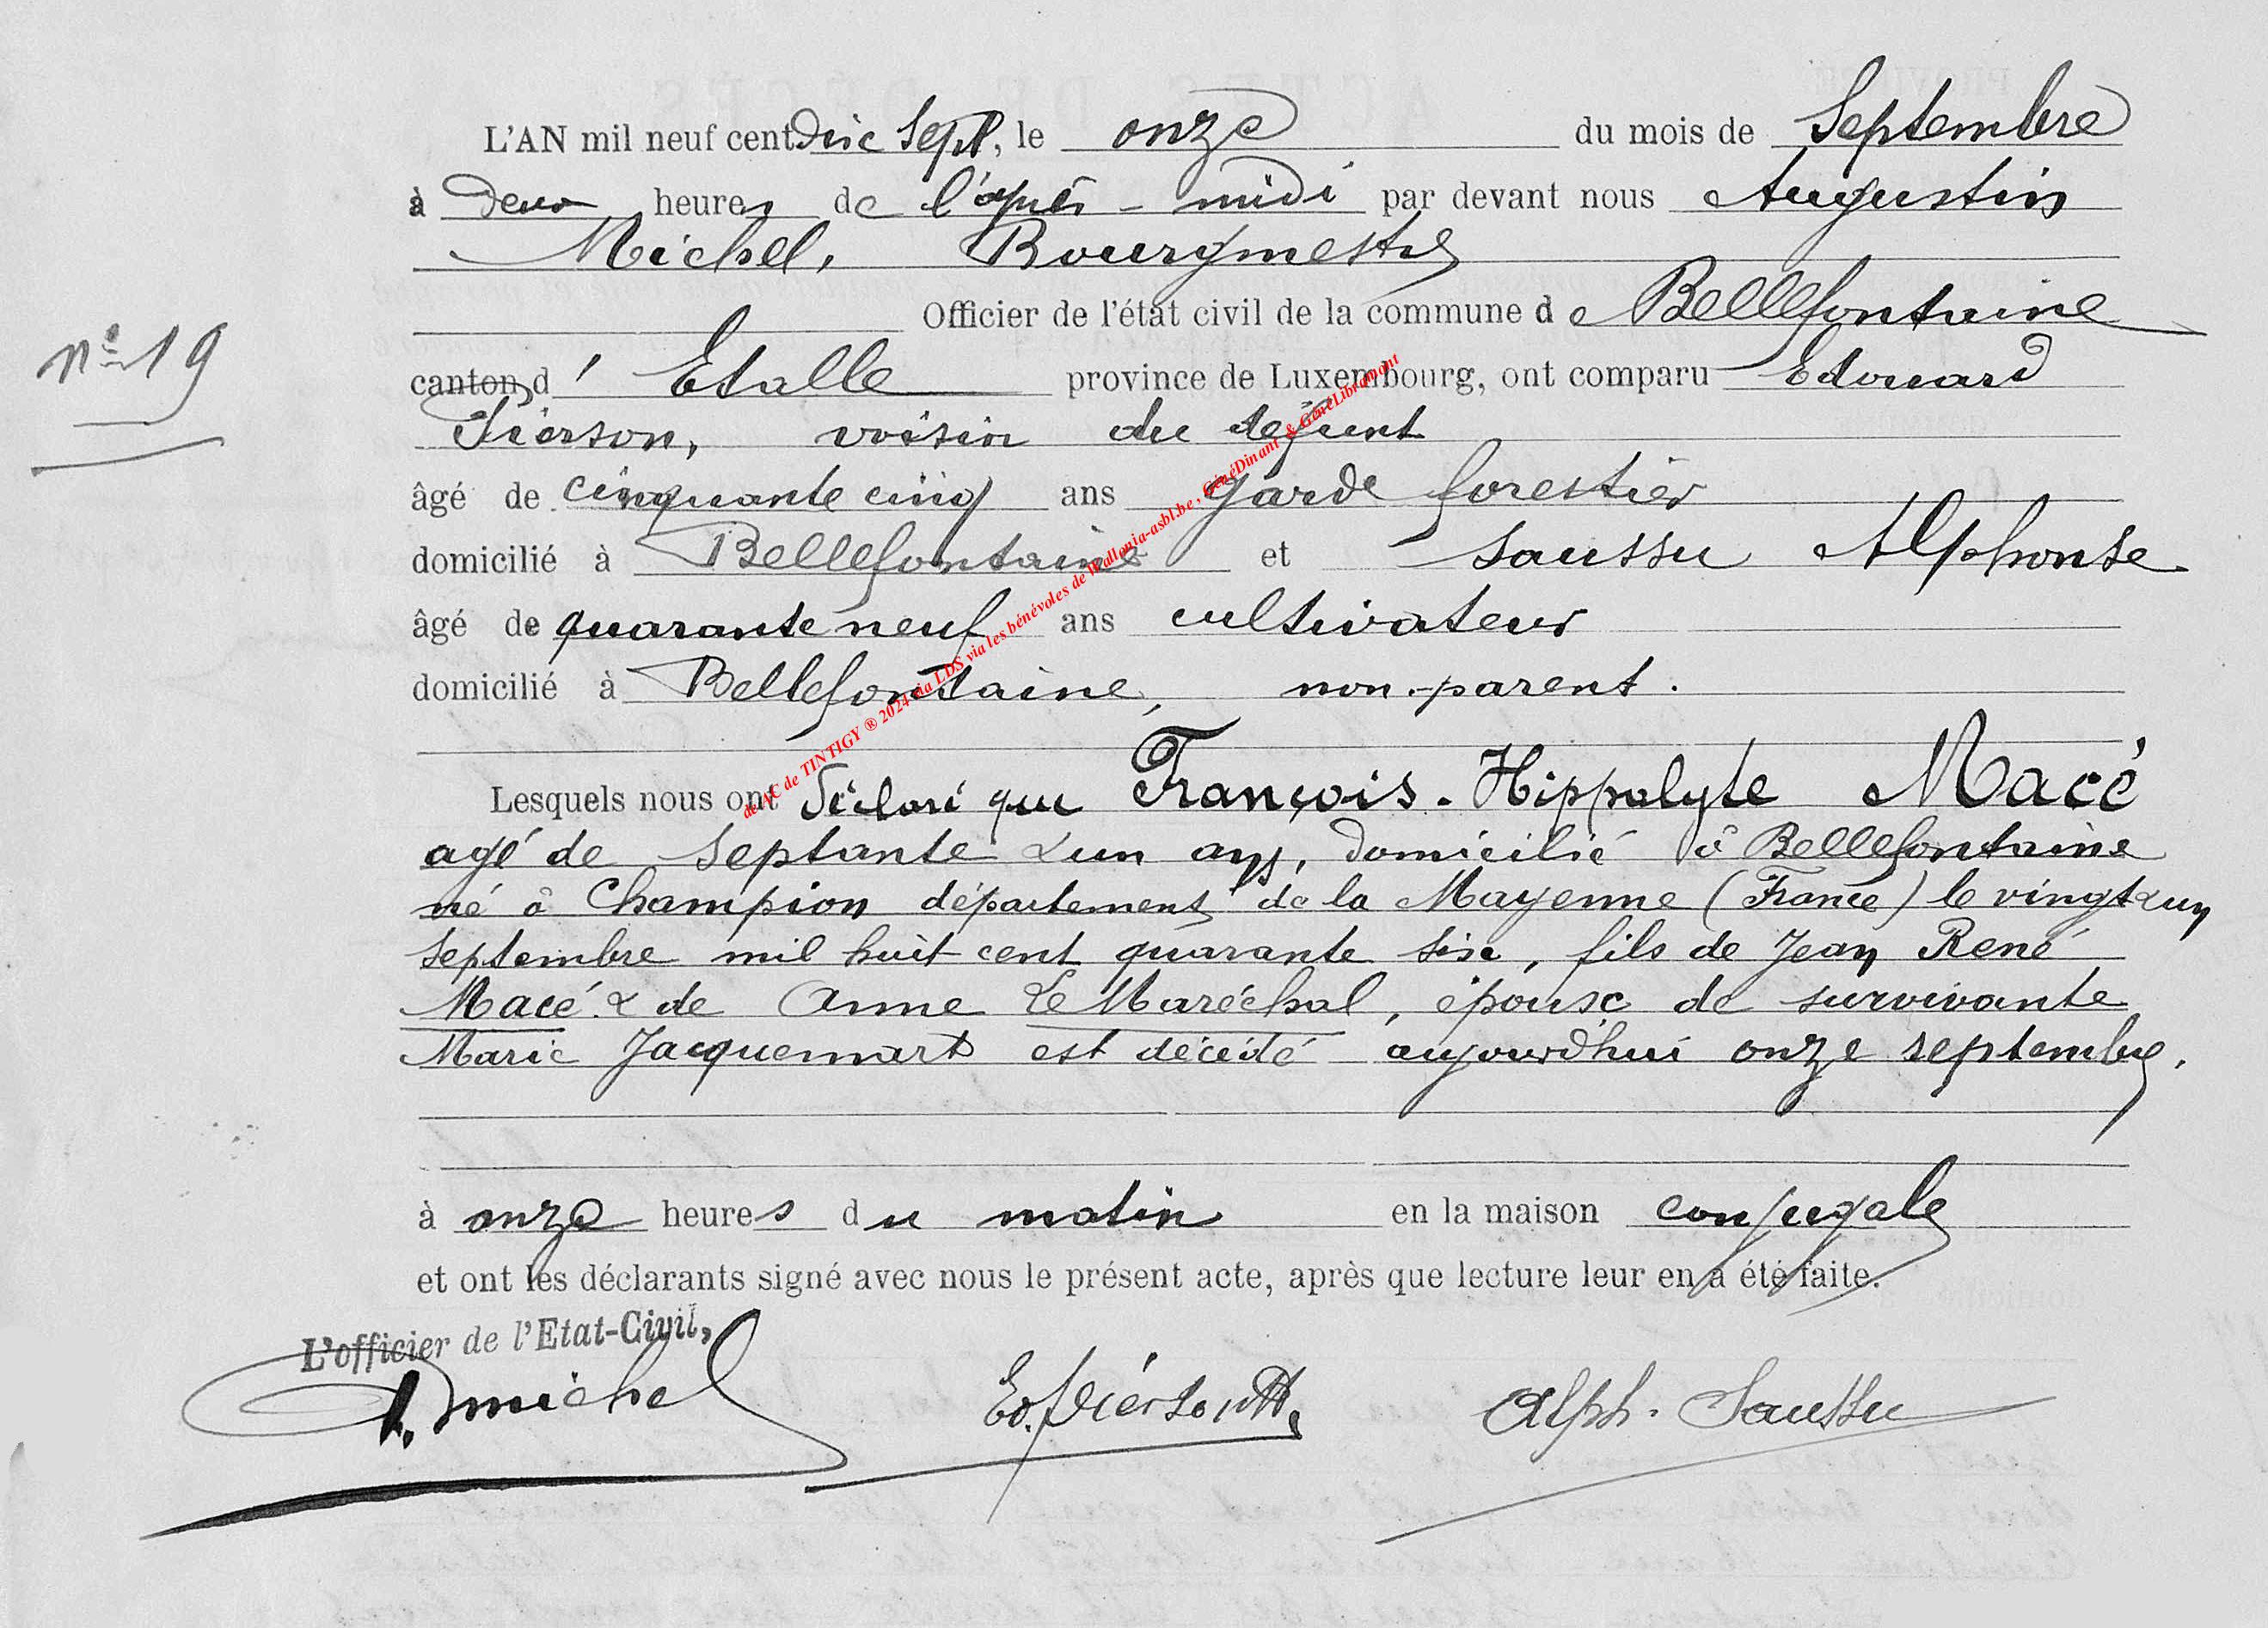 L'AN mil neuf cent dix Sept, le onze du mois de Septembre
à deux heures de l'après-midi par devant nous Augustin
Michel, Bourgmestre
Officier de l'état civil de la commune de Bellefontaine
n° 19
canton d'Etalle province de Luxembourg, ont comparu Edouard
Pierson, voisin du défunt
âgé de cinquante cinq ans garde forestier
domicilié à Bellefontaine et Saussu Alphonse
âgé de quarante neuf ans cultivateur
domicilié à Bellefontaine, non-parent.
Lesquels nous ont déclaré que François-Hippolyte Macé
agé de Septante & un ans, domicilié à Bellefontaine
né à Champion département de la Mayenne (France) le vingt & un
septembre mil huit cent quarante six, fils de Jean René
Macé & de Anne Le Maréchal, épouse de survivante
Marie Jacquemart est décédé aujourd'hui onze septembre.
à onze heures du matin en la maison conjugale
et ont les déclarants signé avec nous le présent acte, après que lecture leur en a été faite.
L'officier de l'Etat-Civil,
A. Michel Ed. Pierson Alph. Saussu
de AC de TINTIGY ® 2024 via LDS via les bénévoles de Wallonia-asbl.be, GénéDinant & GénéLibramont